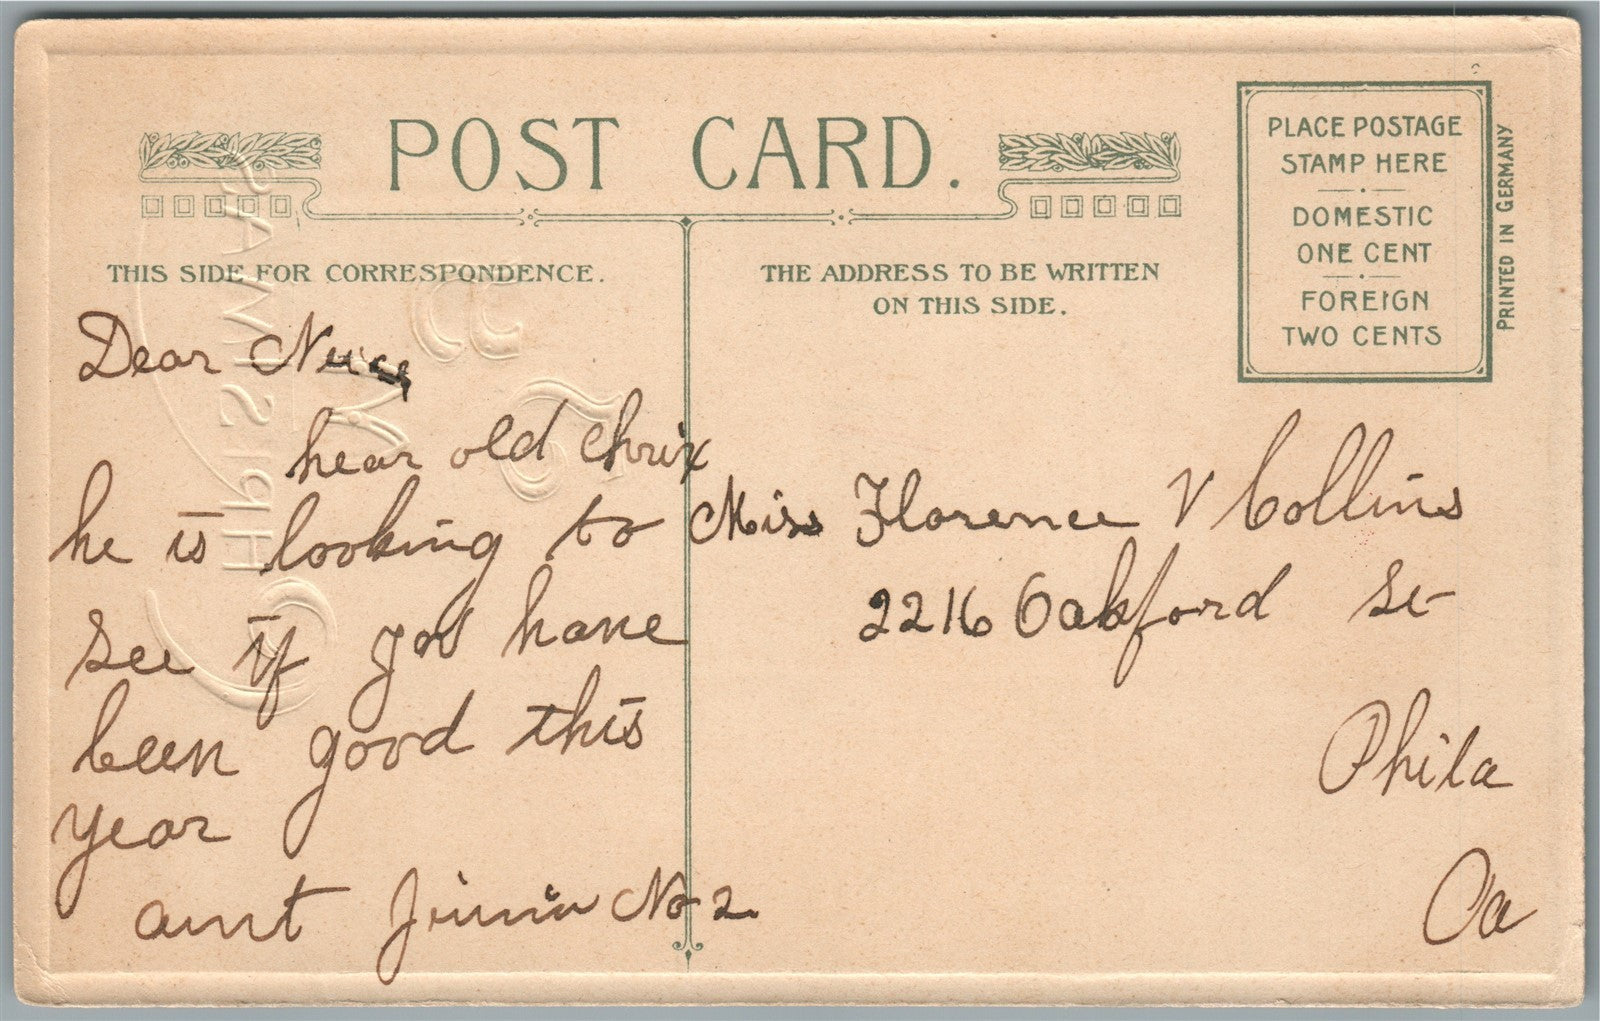 POST CARD.
PLACE POSTAGE
STAMP HERE
DOMESTIC
ONE CENT
FOREIGN
TWO CENTS
PRINTED IN GERMANY
THIS SIDE FOR CORRESPONDENCE.
THE ADDRESS TO BE WRITTEN
ON THIS SIDE.
Dear
hear old Chrix
he is looking to
see if you have
been good this
year
aunt Jinnie No 2
Miss Florence V Collins
2216 Oakford St
Phila
Pa